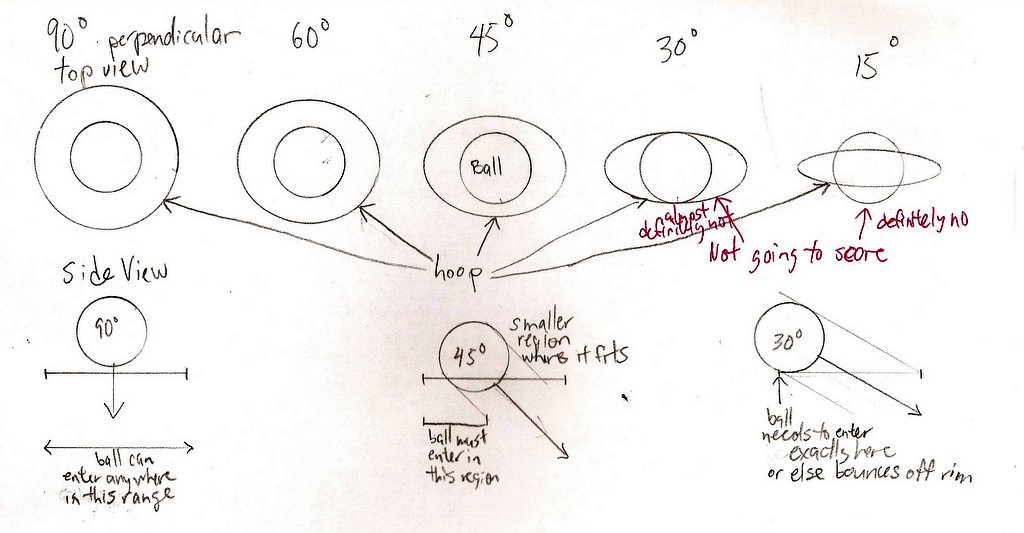 90° perpendicular
top view
60°
45°
30°
15°
Ball
almost
definitely not
Not going to score
definitely no
hoop
side View
90°
ball can
enter anywhere
in this range
45°
smaller
region
where it fits
ball must
enter in
this region
30°
ball
needs to enter
exactly here
or else bounces off rim